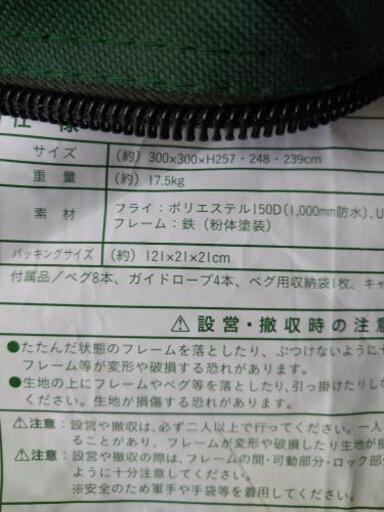 仕様
サイズ (約) 300×300×H257・248・239cm
重量 (約) 17.5kg
素材 フライ：ポリエステル150D(1,000mm防水)、U
フレーム：鉄（粉体塗装）
パッキングサイズ (約) 121×21×21cm
付属品／ペグ8本、ガイドロープ4本、ペグ用収納袋1枚、キャ
⚠設営・撤収時の注意
●たたんだ状態のフレームを落としたり、ぶつけないように十
フレーム等が変形や破損する恐れがあります。
●生地の上にフレームやペグ等を落としたり、引っ掛けたりしな
ください。生地が損傷する恐れがあります。
⚠注意：設営や撤収は、必ず二人以上で行ってください。一人
ることがあり、フレームが変形や破損したり生地が損
⚠注意：設営や撤収の際は、フレームの間・可動部分・ロック部
ように十分注意してください。
※安全のため軍手や手袋等を着用してください。